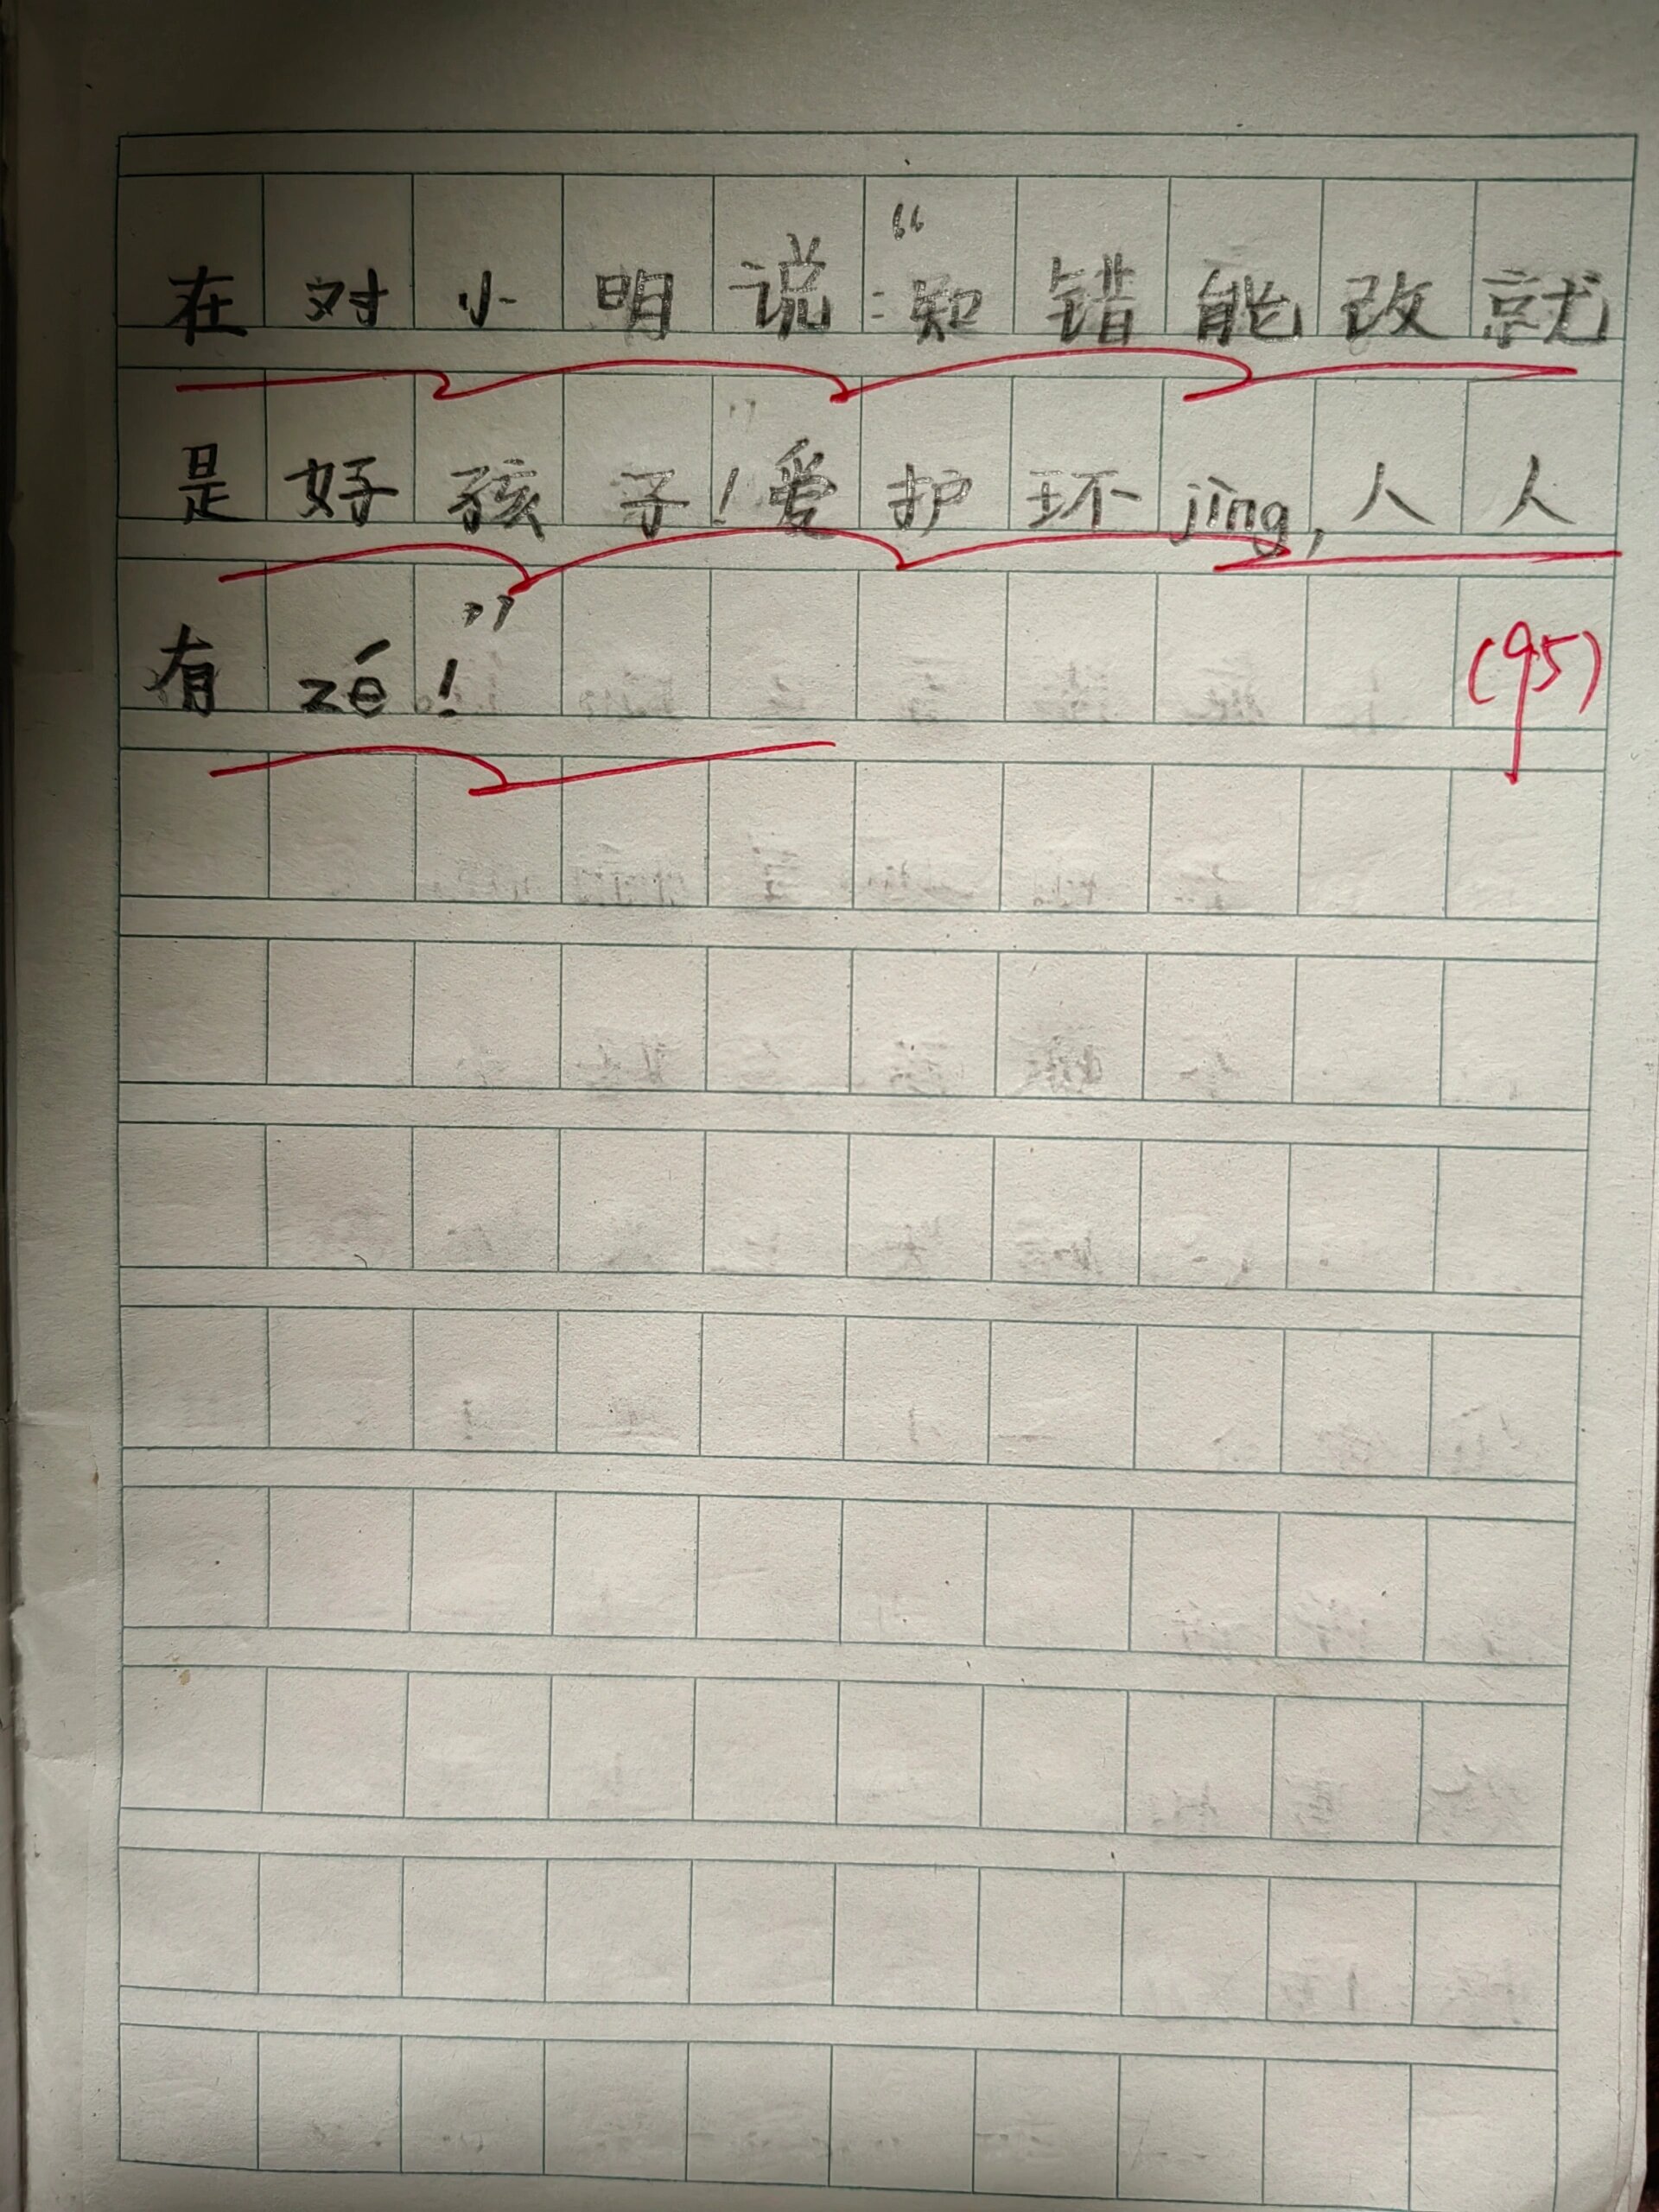 在对小明说:“知错能改就
是好孩子!爱护环jìng,人人
有zé!”
(95)